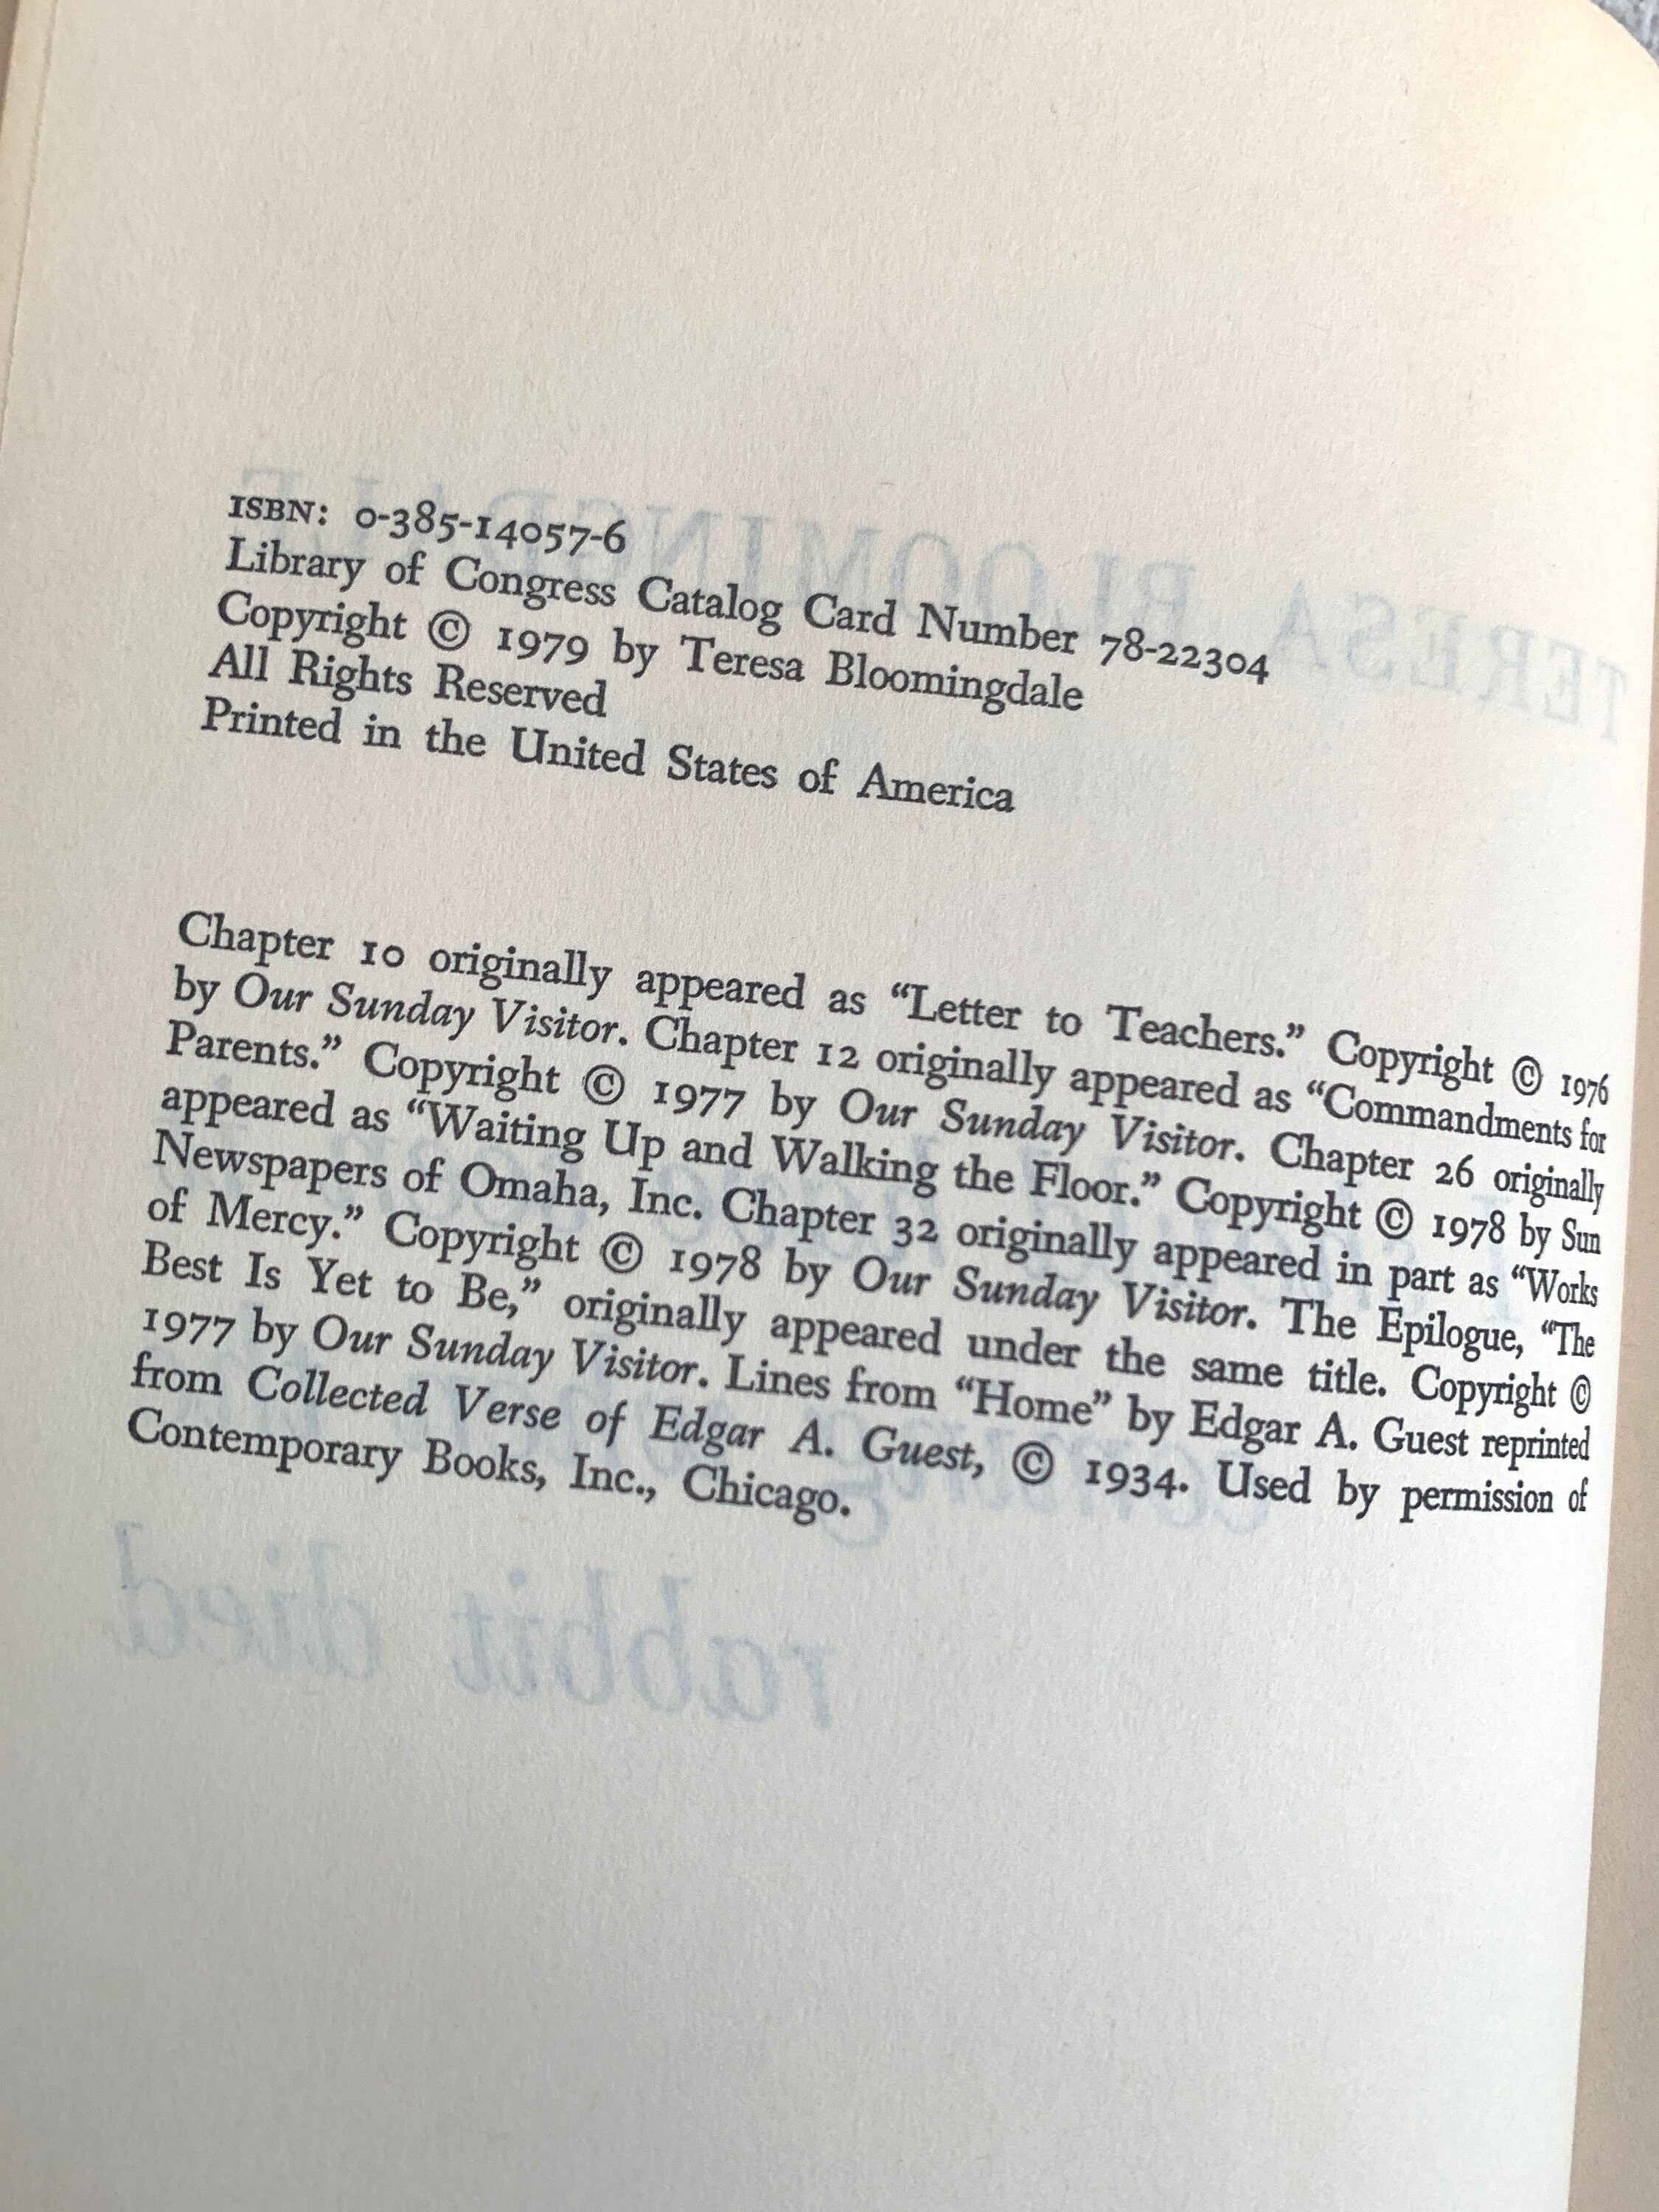 ISBN: 0-385-14057-6
Library of Congress Catalog Card Number 78-22304
Copyright © 1979 by Teresa Bloomingdale
All Rights Reserved
Printed in the United States of America
Chapter 10 originally appeared as “Letter to Teachers.” Copyright © 1976
by Our Sunday Visitor. Chapter 12 originally appeared as “Commandments for
Parents.” Copyright © 1977 by Our Sunday Visitor. Chapter 26 originally
appeared as “Waiting Up and Walking the Floor.” Copyright © 1978 by Sun
Newspapers of Omaha, Inc. Chapter 32 originally appeared in part as “Works
of Mercy.” Copyright © 1978 by Our Sunday Visitor. The Epilogue, “The
Best Is Yet to Be,” originally appeared under the same title. Copyright ©
1977 by Our Sunday Visitor. Lines from “Home” by Edgar A. Guest reprinted
from Collected Verse of Edgar A. Guest, © 1934. Used by permission of
Contemporary Books, Inc., Chicago.
TERESA BLOOMINGDALE
rabbit died